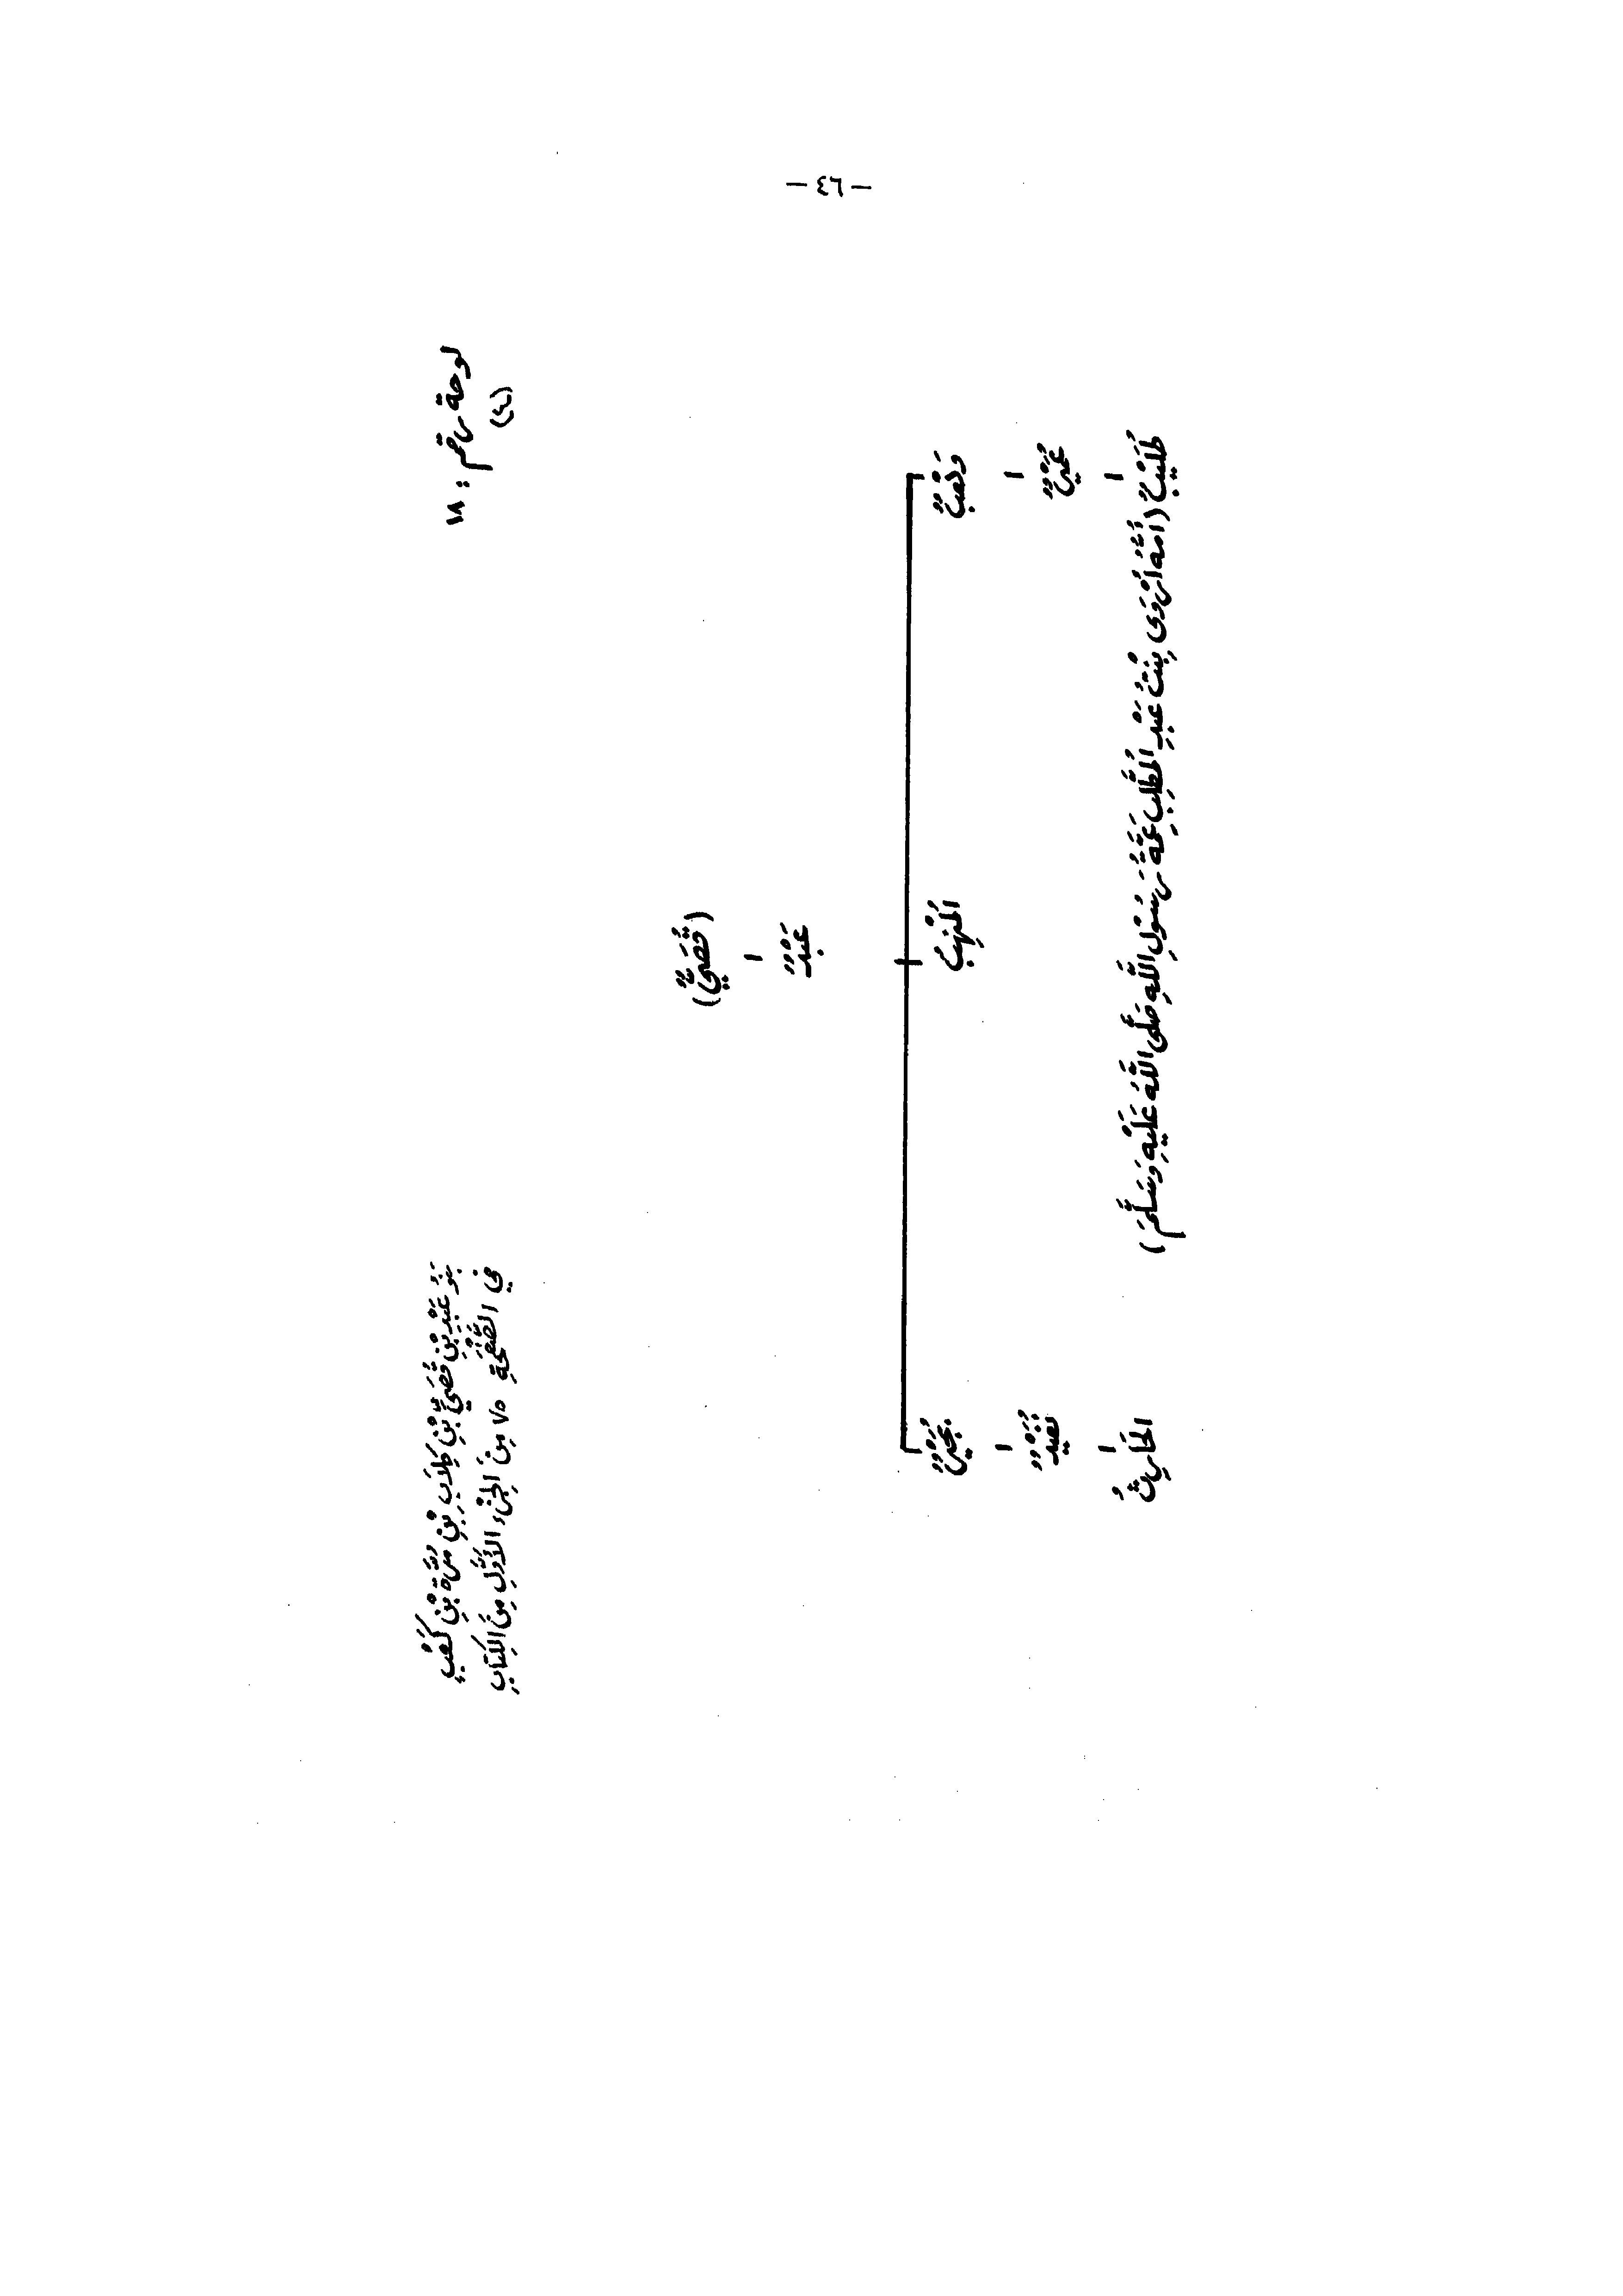 - ٤٦ -
لوحة رقم: ١٨
(٤)
بَنُو عَبْدِ بْنِ قُصَيِّ بْنِ كِلَابِ بْنِ مُرَّةَ بْنِ كَعْبٍ
فِي الصَّفْحَةِ ٧٥ مِنَ الْجُزْءِ الأَوَّلِ مِنَ الْكِتَابِ
(قُصَيٌّ)
عَبْدٌ
وَهْبٌ
الْمُنْهِبُ
بُجَيْرٌ
عُمَيْرٌ
نُفَيْدٌ
طُلَيْبٌ (أُمُّهُ أَرْوَى بِنْتُ عَبْدِ الْمُطَّلِبِ عَمَّةُ رَسُوْلِ اللَّهِ صَلَّى اللَّهُ عَلَيْهِ وَسَلَّمَ)
الحَارِثُ